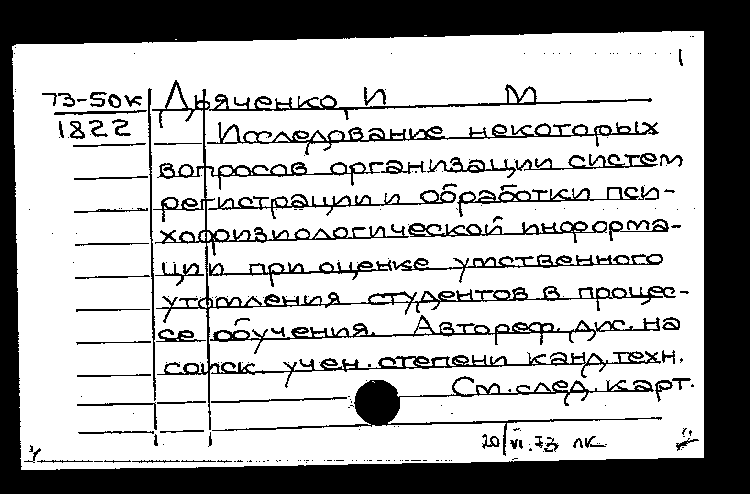 1
73-50к Дьяченко, И М
1822 Исследование некоторых
вопросов организации систем
регистрации и обработки пси-
хофизиологической информа-
ции при оценке умственного
утомления студентов в процес-
се обучения. Автореф. дис. на
соиск. учен. степени канд. техн.
См. след. карт.
20/VI.73 ЛК